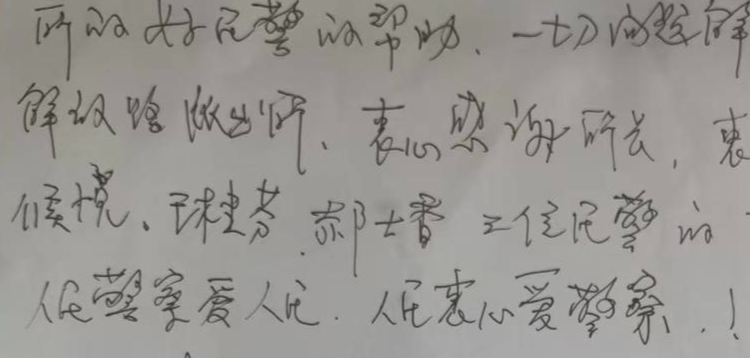 所的好民警的帮助、一切问题解
解放路派出所、衷心感谢所长，衷
侯悦、王桂芬、郝士香三位民警的
人民警察爱人民．人民衷心爱警察．！